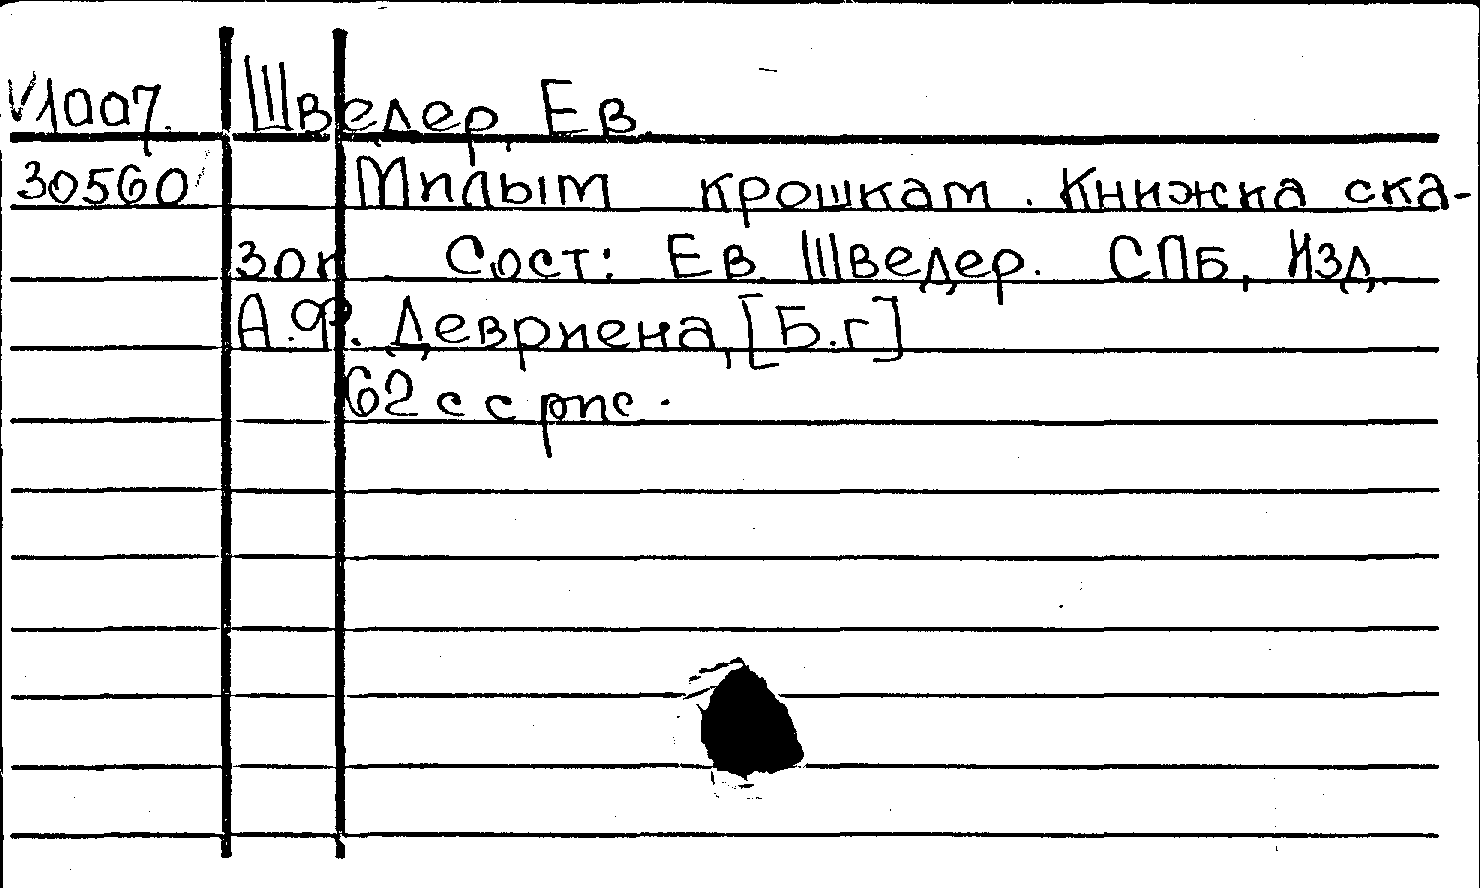 V1007. Шведер, Ев.
30560 Милым крошкам. Книжка ска-
зок Сост: Ев. Шведер. СПБ, Изд.
А.Ф. Девриена, [Б.г]
62 с с рис.